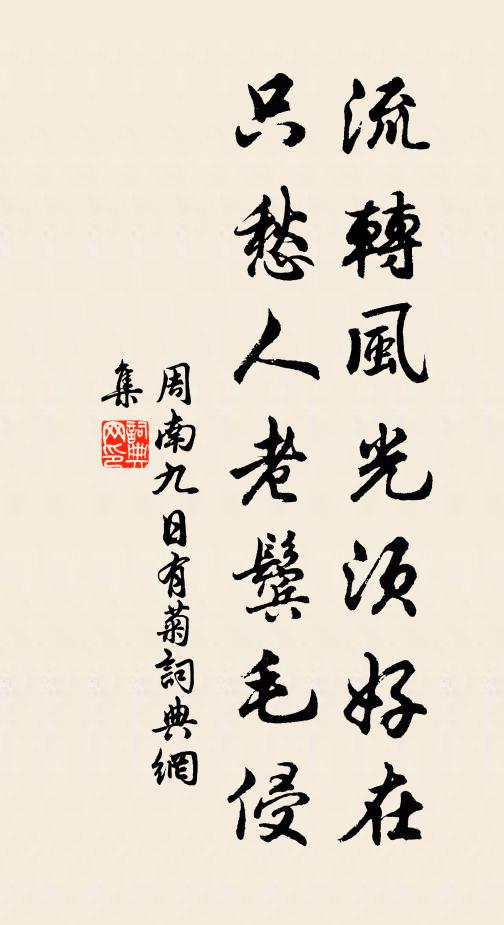 流轉風光須好在
只愁人老鬓毛侵
周南九日有菊詞典網
集
詞典网印